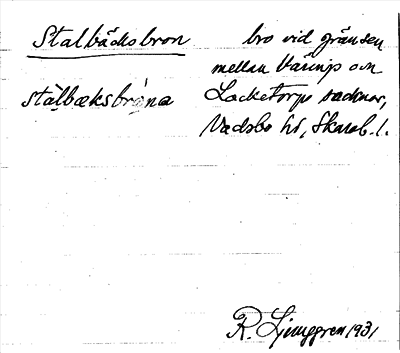 Stalbäcksbron
stàlbæksbróna
bro vid gränsen
mellan Värings och
Locketorps socknar,
Vadsbo hd, Skarab. l.
R. Ljunggren 1931